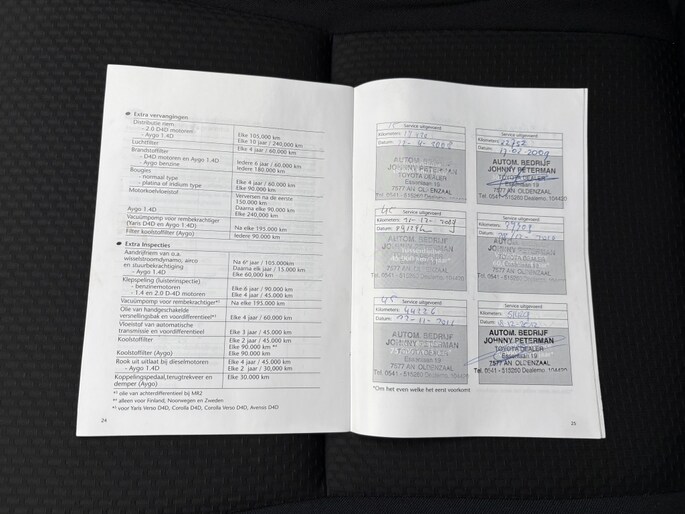 Extra vervangingen
Distributie riem:
- 2.0 D4D motoren
- Aygo 1.4D
Elke 105.000 km
Elke 10 jaar / 240,000 km
Luchtfilter
Elke 4 jaar / 60.000 km
Brandstoffilter
- D4D motoren en Aygo 1.4D
- Aygo benzine
Iedere 6 jaar / 60.000 km
Iedere 180.000 km
Bougies
- normaal type
- platina of iridium type
Elke 4 jaar / 60.000 km
Elke 90.000 km
Motorkoelvloeistof
Aygo 1.4D
Verversen na de eerste
150.000 km
Daarna elke 90.000 km
Elke 240,000 km
Vacuümpomp voor rembekrachtiger
(Yaris D4D en Aygo 1.4D)
Na elke 195.000 km
Filter koolstoffilter (Aygo)
Iedere 90.000 km
Extra Inspecties
Aandrijfriem van o.a.
wisselstroomdynamo, airco
en stuurbekrachtiging
- Aygo 1.4D
Na 6e jaar / 105.000km
Daarna elk jaar / 15.000 km
Elke 60,000 km
Klepspeling (luisterinspectie)
- benzinemotoren
- 1.4 en 2.0 D-4D motoren
Elke 6 jaar / 90.000 km
Elke 4 jaar / 45.000 km
Vacuümpomp voor rembekrachtiger*³
Na elke 195.000 km
Olie van handgeschakelde
versnellingsbak en voordifferentieel*¹
Elke 4 jaar / 60.000 km
Vloeistof van automatische
transmissie en voordifferentieel
Elke 3 jaar / 45.000 km
Koolstoffilter
Koolstoffilter (Aygo)
Elke 2 jaar / 45.000 km
Elke 90.000 km *²
Elke 90.000 km
Rook uit uitlaat bij dieselmotoren
- Aygo 1.4D
Elke 4 jaar / 45.000 km
Elke 2 jaar / 30,000 km
Koppelingspedaal,terugtrekveer en
demper (Aygo)
Elke 30.000 km
*¹ olie van achterdifferentieel bij MR2
*² alleen voor Finland, Noorwegen en Zweden
*³ voor Yaris Verso D4D, Corolla D4D, Corolla Verso D4D, Avensis D4D
24
Service uitgevoerd:
Kilometers:
Datum:
AUTOM. BEDRIJF
JOHNNY PETERMAN
TOYOTA DEALER
Essenlaan 19
7577 AN OLDENZAAL
Tel. 0541 - 515260 Dealerno. 104420
Service uitgevoerd:
Kilometers:
Datum: 17-02-2009
AUTOM. BEDRIJF
JOHNNY PETERMAN
TOYOTA DEALER
Essenlaan 19
7577 AN OLDENZAAL
Tel. 0541 - 515260 Dealerno. 104420
Service uitgevoerd:
Kilometers:
Datum:
AUTOM. BEDRIJF
JOHNNY PETERMAN
7577 AN OLDENZAAL
Tel. 0541 - 515260 Dealerno.
Service uitgevoerd:
Kilometers:
Datum:
AUTOM. BEDRIJF
JOHNNY PETERMAN
TOYOTA DEALER
7577 AN OLDENZAAL
Tel. 0541 - 515260 Dealerno.
Service uitgevoerd:
Kilometers: 44326
Datum:
AUTOM. BEDRIJF
JOHNNY PETERMAN
TOYOTA DEALER
Essenlaan 19
7577 AN OLDENZAAL
Tel. 0541 - 515260 Dealerno. 104420
Service uitgevoerd:
Kilometers:
Datum:
AUTOM. BEDRIJF
JOHNNY PETERMAN
TOYOTA DEALER
Essenlaan 19
7577 AN OLDENZAAL
Tel. 0541 - 515260 Dealerno. 104420
*Om het even welke het eerst voorkomt
25